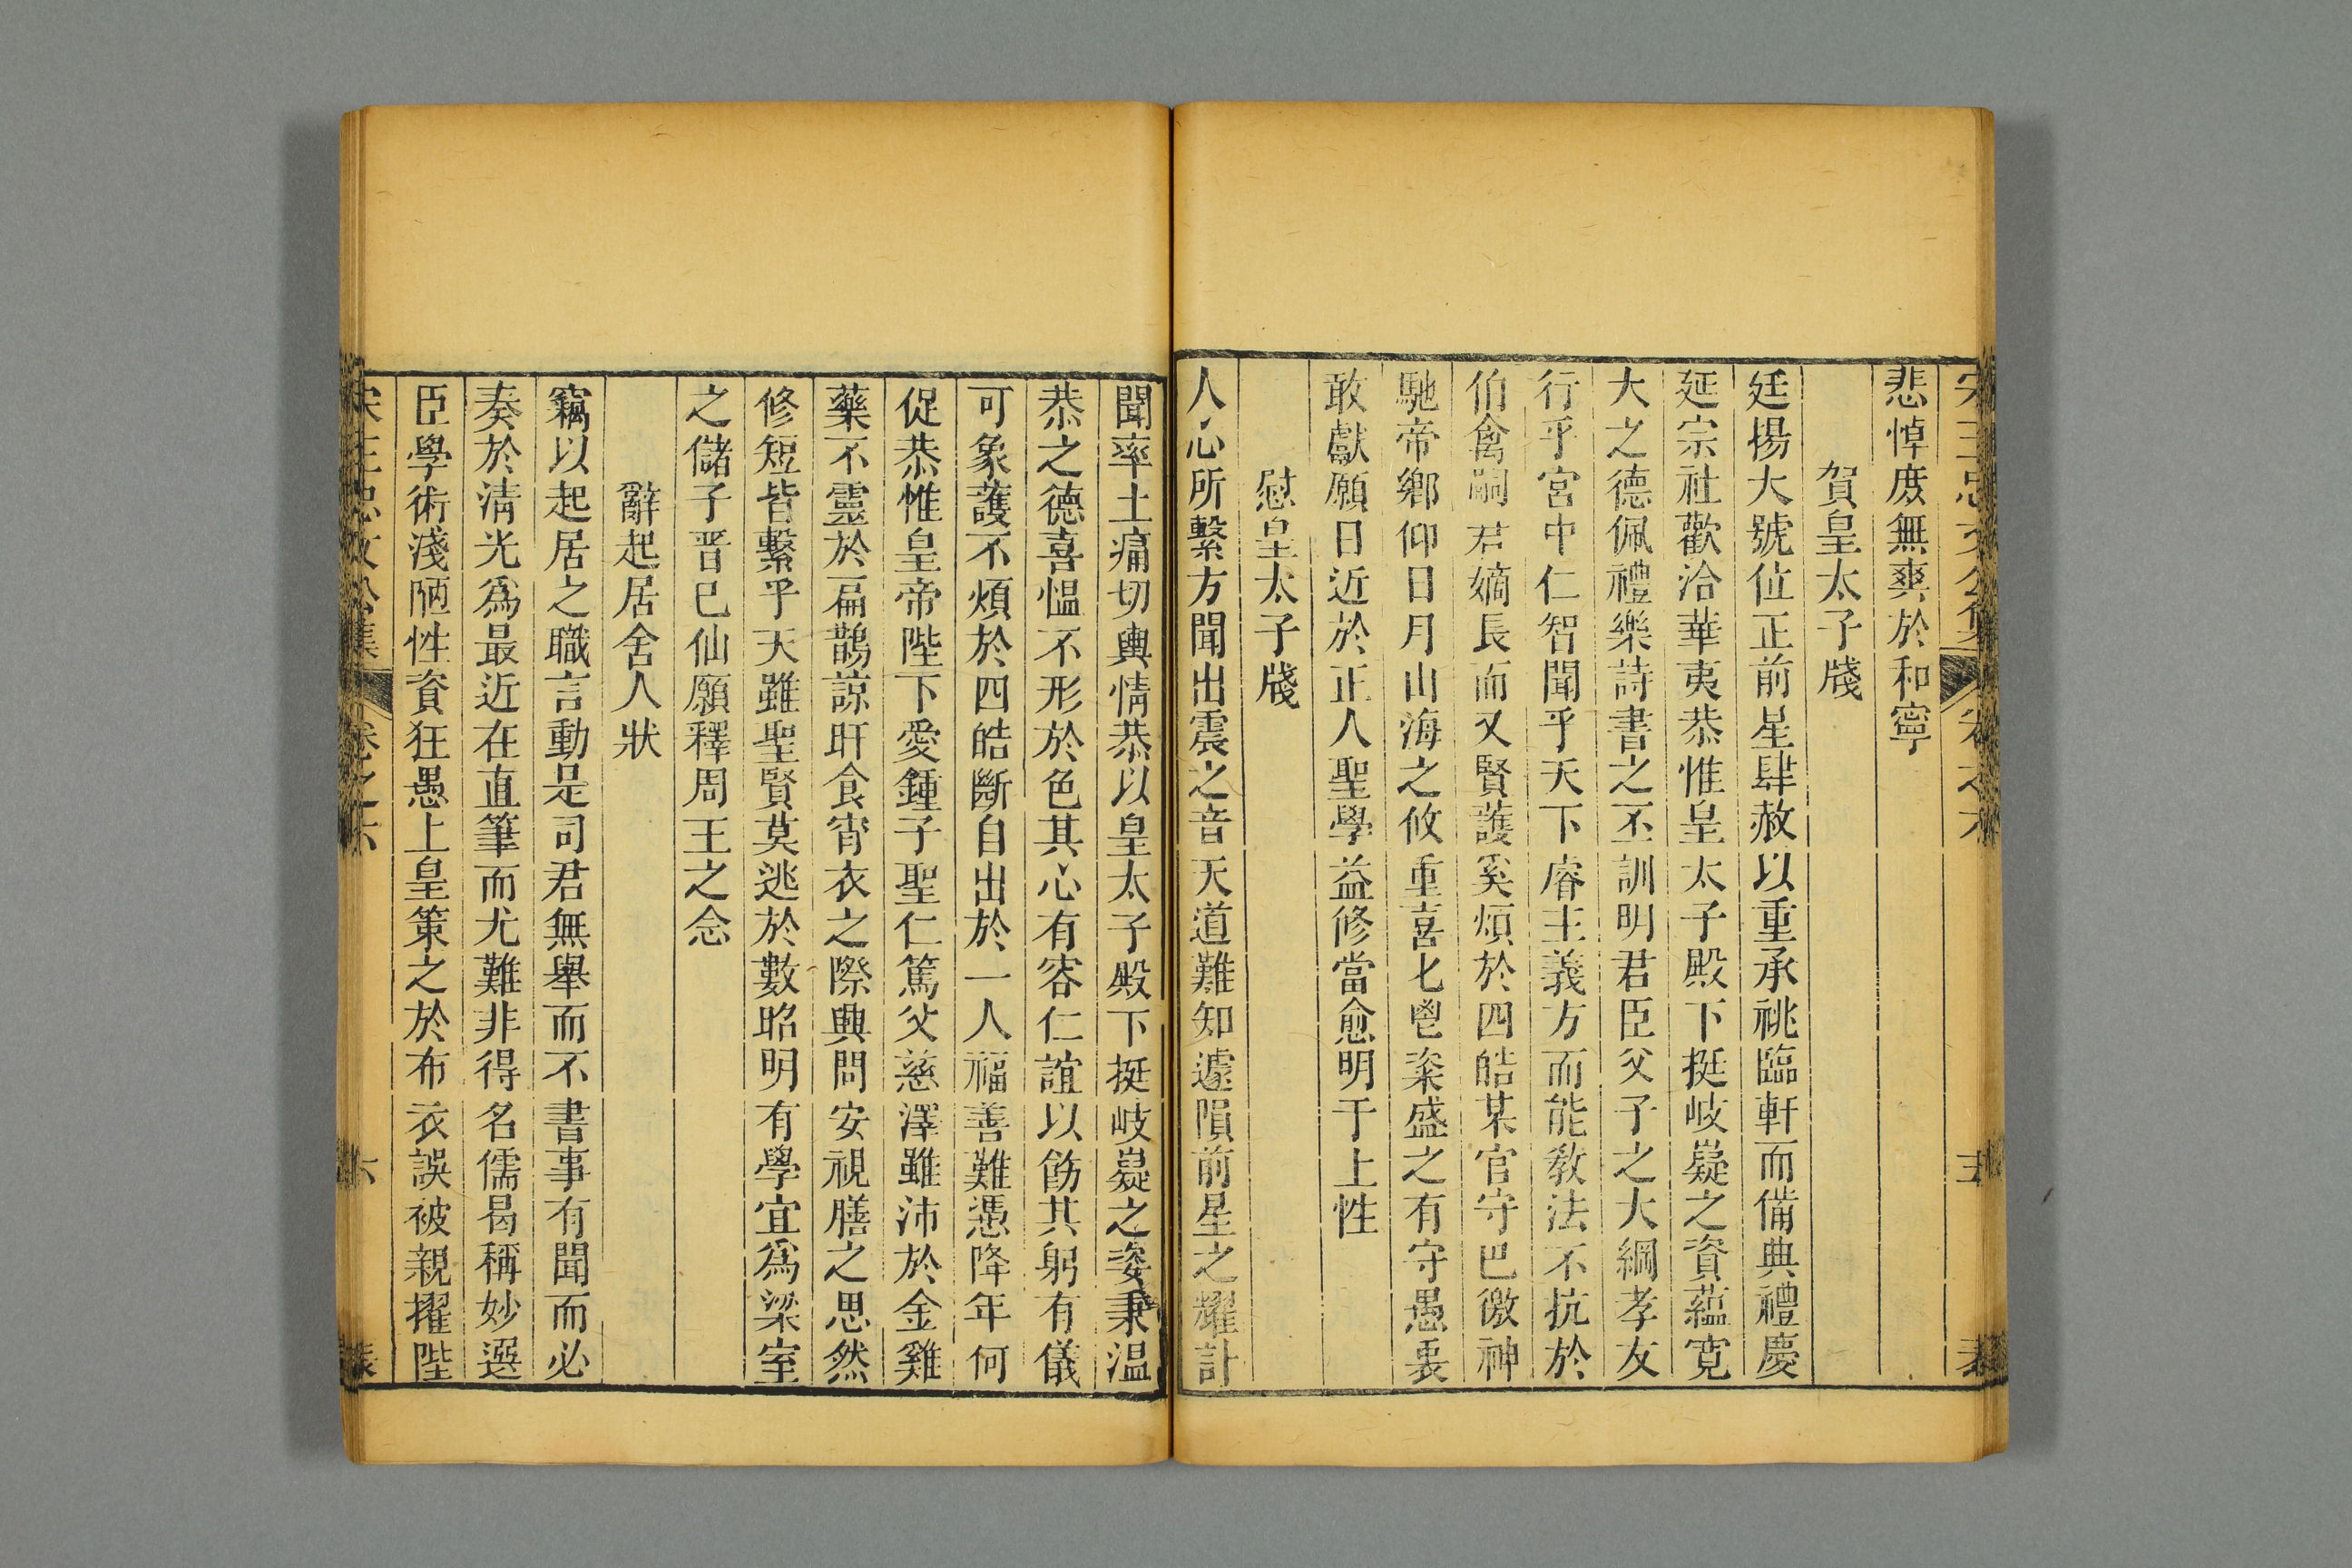 宋王忠文公集 卷之六 五 表
悲悼庶無爽於和寧
賀皇太子牋
廷揚大號位正前星肆赦以重承祧臨軒而備典禮慶
延宗社歡洽華夷恭惟皇太子殿下挺岐嶷之資蘊寛
大之德佩禮樂詩書之丕訓明君臣父子之大綱孝友
行乎宮中仁智聞乎天下睿主義方而能敎法不抗於
伯禽嗣君嫡長而又賢護奚煩於四皓某官守巴徼神
馳帝鄉仰日月山海之攸重喜匕鬯粢盛之有守愚衷
敢獻願日近於正人聖學益修當愈明于上性
慰皇太子牋
人心所繫方聞出震之音天道難知遽隕前星之耀訃
聞率土痛切輿情恭以皇太子殿下挺岐嶷之姿秉温
恭之德喜慍不形於色其心有容仁誼以飭其躬有儀
可象護不煩於四皓斷自出於一人福善難憑降年何
促恭惟皇帝陛下愛鍾子聖仁篤父慈澤雖沛於金雞
藥不靈於扁鵲諒旰食宵衣之際興問安視膳之思然
修短皆繫乎天雖聖賢莫逃於數昭明有學宜爲梁室
之儲子晋已仙願釋周王之念
辭起居舍人狀
竊以起居之職言動是司君無舉而不書事有聞而必
奏於淸光爲最近在直筆而尤難非得名儒曷稱妙選
臣學術淺陋性資狂愚上皇策之於布衣誤被親擢陛
宋王忠文公集 卷之六 六 表